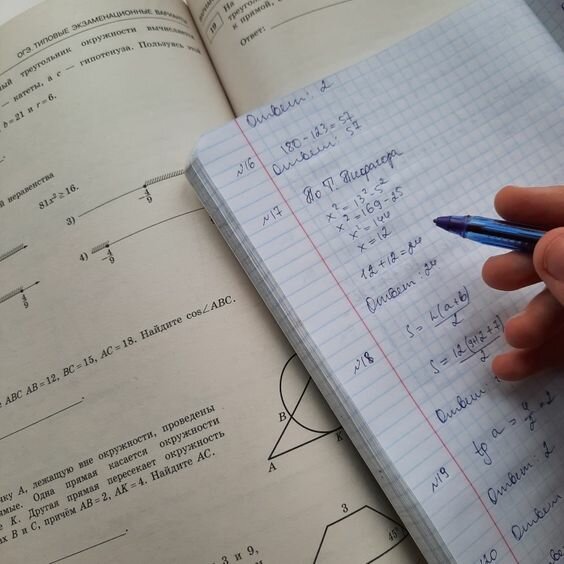 ОГЭ. ТИПОВЫЕ ЭКЗАМЕНАЦИОННЫЕ ВАРИАНТЫ
треугольник окружности вычисляется
— катеты, а c — гипотенуза. Пользуясь этой
b=21 и r=6.
неравенства
81x²≥16.
3)
4/9
4)
4/9
4/9
ABC AB=12, BC=15, AC=18. Найдите cos∠ABC.
A, лежащую вне окружности, проведены
Одна прямая касается окружности
K. Другая прямая пересекает окружность
B и C, причём AB=2, AK=4. Найдите AC.
B
A
K
3
45°
3 и 9,
19
На
к прямой,
Ответ:
Ответ: 2
№16
180-123=57
Ответ: 57
№17
По т. Пифагора
x²=13²-5²
x²=169-25
x²=144
x=12
12+12=24
Ответ: 24
№18
S=h(a+b)/2
Ответ:
tg a = =2
№19
Ответ: 2